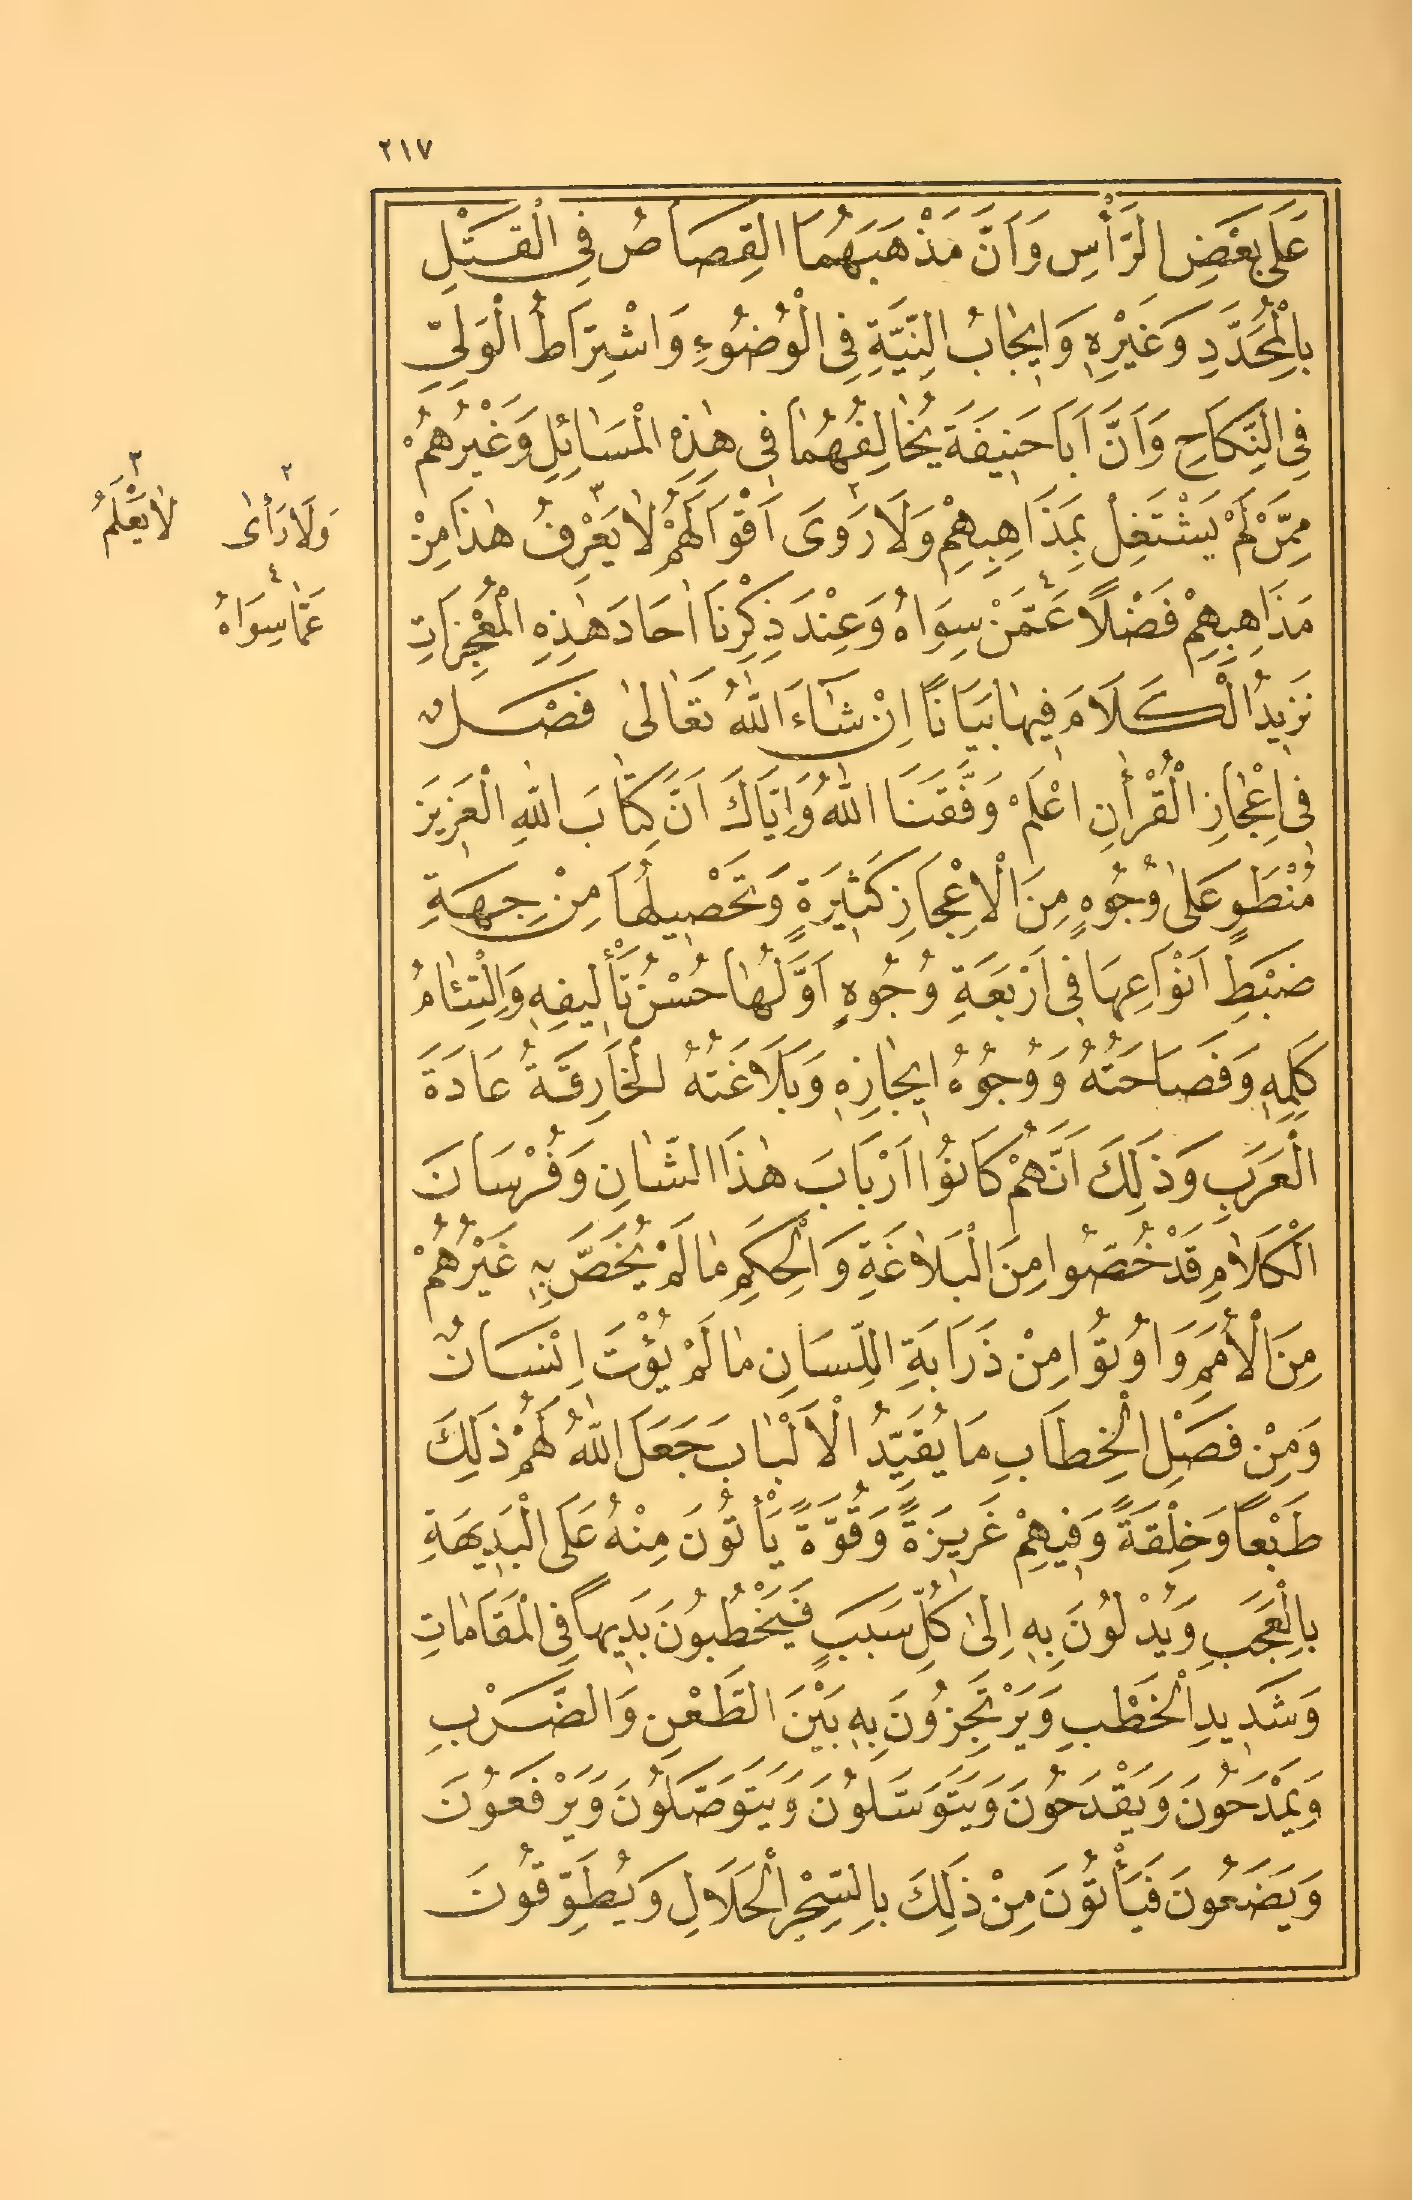 ٢١٧
عَلَى بَعْضِ الرَّأْسِ وَاَنَّ مَذْهَبَهُمَا الْقِصَاصُ فِي الْقَتْلِ
بِالْمُحَدَّدِ وَغَيْرِهِ وَاِيجَابُ النِّيَّةِ فِي الْوُضُوءِ وَاشْتِرَاطُ الْوَلِيِّ
فِي النِّكَاحِ وَاَنَّ اَبَا حَنِيفَةَ يُخَالِفُهُمَا فِي هٰذِهِ الْمَسَائِلِ وَغَيْرُهُمْ
مِمَّنْ لَمْ يَشْتَغِلْ بِمَذَاهِبِهِمْ وَلَا رَوَى ٢ اَقْوَالَهُمْ لَا يَعْرِفُ ٣ هٰذَا مِنْ
مَذَاهِبِهِمْ فَضْلًا عَمَّنْ ٤ سِوَاهُ وَعِنْدَ ذِكْرِنَا اٰحَادَ هٰذِهِ الْمُعْجِزَاتِ
نَزِيدُ الْكَلَامَ فِيهَا بَيَانًا اِنْ شَاءَ اللّٰهُ تَعَالٰى فَصْلٌ
فِي اِعْجَازِ الْقُرْأٰنِ اعْلَمْ وَفَّقَنَا اللّٰهُ وَاِيَّاكَ اَنَّ كِتَابَ اللّٰهِ الْعَزِيزَ
مُنْطَوٍ عَلٰى وُجُوهٍ مِنَ الْاِعْجَازِ كَثِيرَةٍ وَتَحْصِيلُهَا مِنْ جِهَةِ
ضَبْطِ اَنْوَاعِهَا فِي اَرْبَعَةِ وُجُوهٍ اَوَّلُهَا حُسْنُ تَأْلِيفِهِ وَالْتِئَامُ
كَلِمِهِ وَفَصَاحَتُهُ وَوُجُوهُ اِيجَازِهِ وَبَلَاغَتُهُ الْخَارِقَةُ عَادَةَ
الْعَرَبِ وَذٰلِكَ اَنَّهُمْ كَانُوا اَرْبَابَ هٰذَا الشَّانِ وَفُرْسَانَ
الْكَلَامِ قَدْ خُصُّوا مِنَ الْبَلَاغَةِ وَالْحِكَمِ مَا لَمْ يُخَصَّ بِهِ غَيْرُهُمْ
مِنَ الْاُمَمِ وَاُوتُوا مِنْ ذَرَابَةِ اللِّسَانِ مَا لَمْ يُؤْتَ اِنْسَانٌ
وَمِنْ فَصْلِ الْخِطَابِ مَا يُقَيِّدُ الْاَلْبَابَ جَعَلَ اللّٰهُ لَهُمْ ذٰلِكَ
طَبْعًا وَخِلْقَةً وَفِيهِمْ غَرِيزَةً وَقُوَّةً يَأْتُونَ مِنْهُ عَلَى الْبَدِيهَةِ
بِالْعَجَبِ وَيُدْلُونَ بِهِ اِلٰى كُلِّ سَبَبٍ فَيَخْطُبُونَ بَدِيهًا فِي الْمَقَامَاتِ
وَشَدِيدِ الْخَطْبِ وَيَرْتَجِزُونَ بِهِ بَيْنَ الطَّعْنِ وَالضَّرْبِ
وَيَمْدَحُونَ وَيَقْدَحُونَ وَيَتَوَسَّلُونَ وَيَتَوَصَّلُونَ وَيَرْفَعُونَ
وَيَضَعُونَ فَيَأْتُونَ مِنْ ذٰلِكَ بِالسِّحْرِ الْحَلَالِ وَيُطَوِّقُونَ
٢ وَلَا رَأٰى ٣ لَا يَعْلَمُ
٤ عَمَّا سِوَاهُ